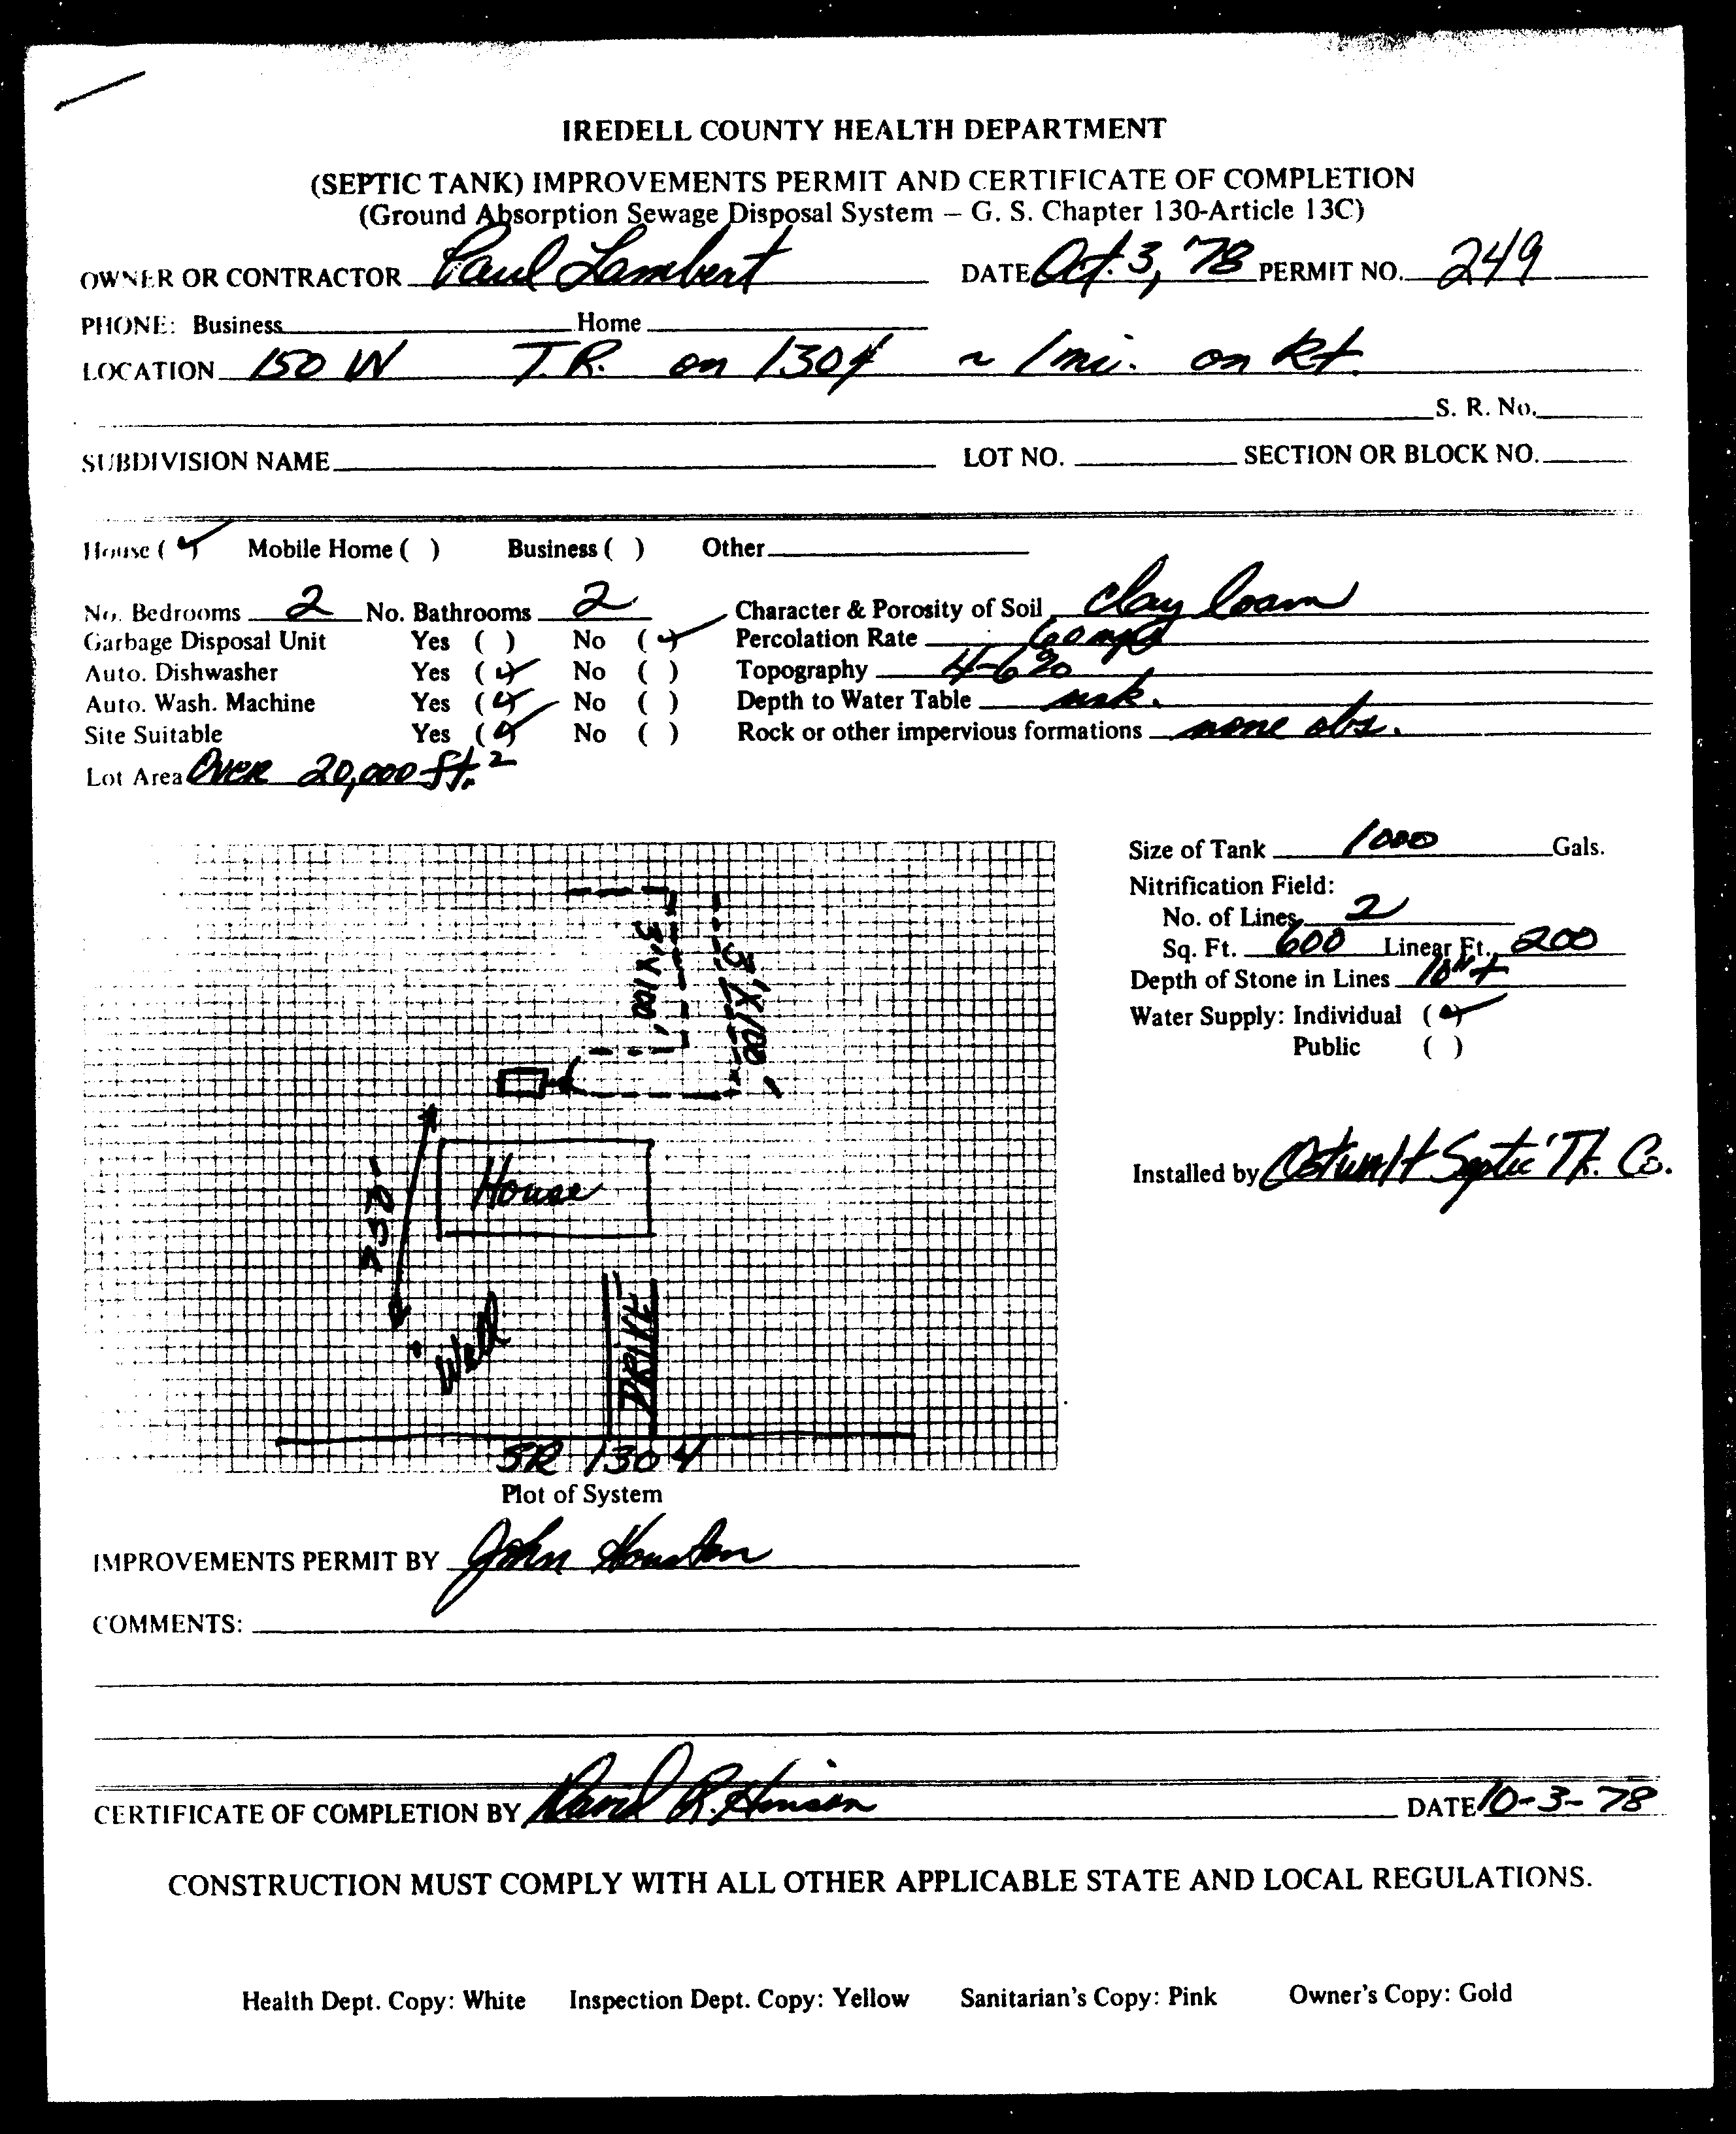 IREDELL COUNTY HEALTH DEPARTMENT
(SEPTIC TANK) IMPROVEMENTS PERMIT AND CERTIFICATE OF COMPLETION
(Ground Absorption Sewage Disposal System – G. S. Chapter 130-Article 13C)
OWNER OR CONTRACTOR Paul Lambert DATE Oct. 3, '78 PERMIT NO. 249
PHONE: Business Home
LOCATION 150 W T.R. on 1304 ~ 1 mi. on Rt.
S. R. No.
SUBDIVISION NAME LOT NO. SECTION OR BLOCK NO.
House (✓) Mobile Home ( ) Business ( ) Other
No. Bedrooms 2 No. Bathrooms 2 Character & Porosity of Soil clay loam
Garbage Disposal Unit Yes ( ) No (✓) Percolation Rate 60 mpi
Auto. Dishwasher Yes (✓) No ( ) Topography 4-6%
Auto. Wash. Machine Yes (✓) No ( ) Depth to Water Table unk.
Site Suitable Yes (✓) No ( ) Rock or other impervious formations none obs.
Lot Area Over 20,000 ft.²
Size of Tank 1000 Gals.
Nitrification Field:
No. of Lines 2
Sq. Ft. 600 Linear Ft. 200
Depth of Stone in Lines 10"+
Water Supply: Individual (✓)
Public ( )
Installed by Ostwalt Septic Tk. Co.
3'X100'
3'X100'
House
Well
DRIVE
SR 1304
Plot of System
IMPROVEMENTS PERMIT BY John Houston
COMMENTS:
CERTIFICATE OF COMPLETION BY David R. Hinson DATE 10-3-78
CONSTRUCTION MUST COMPLY WITH ALL OTHER APPLICABLE STATE AND LOCAL REGULATIONS.
Health Dept. Copy: White Inspection Dept. Copy: Yellow Sanitarian's Copy: Pink Owner's Copy: Gold